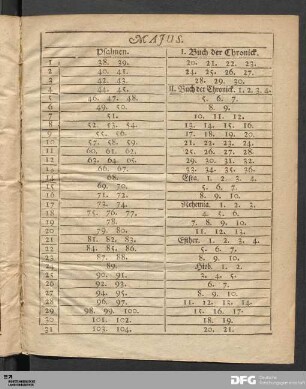 MAJUS.
Psalmen. I. Buch der Chronick.
1 38. 39. 20. 21. 22. 23.
2 40. 41. 24. 25. 26. 27.
3 42. 43. 28. 29. 30.
4 44. 45. II. Buch der Chronick. 1. 2. 3. 4.
5 46. 47. 48. 5. 6. 7.
6 49. 50. 8. 9.
7 51. 10. 11. 12.
8 52. 53. 54. 13. 14. 15. 16.
9 55. 56. 17. 18. 19. 20.
10 57. 58. 59. 21. 22. 23. 24.
11 60. 61. 62. 25. 26. 27. 28.
12 63. 64. 65. 29. 30. 31. 32.
13 66. 67. 33. 34. 35. 36.
14 68. Esra. 1. 2. 3. 4.
15 69. 70. 5. 6. 7.
16 71. 72. 8. 9. 10.
17 73. 74. Nehemia. 1. 2. 3.
18 75. 76. 77. 4. 5. 6.
19 78. 7. 8. 9. 10.
20 79. 80. 11. 12. 13.
21 81. 82. 83. Esther. 1. 2. 3. 4.
22 84. 85. 86. 5. 6. 7.
23 87. 88. 8. 9. 10.
24 89. Hiob. 1. 2.
25 90. 91. 3. 4. 5.
26 92. 93. 6. 7.
27 94. 95. 8. 9. 10.
28 96. 97. 11. 12. 13. 14.
29 98. 99. 100. 15. 16. 17.
30 101. 102. 18. 19.
31 103. 104. 20. 21.
DFG